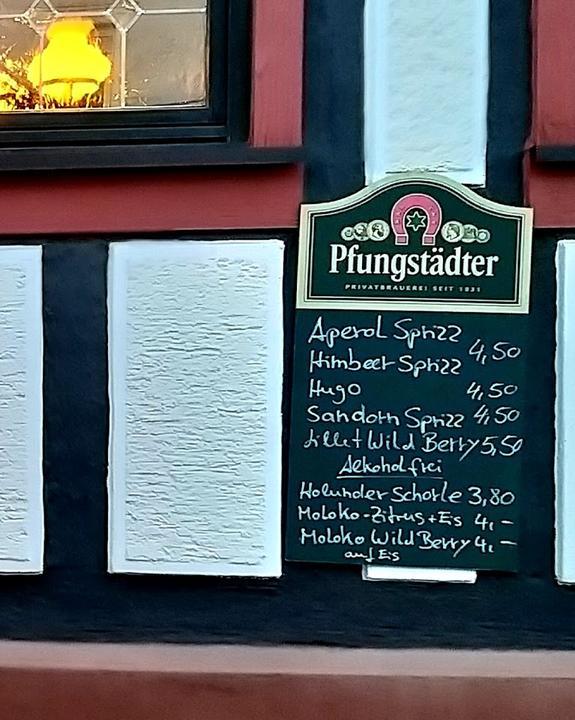 Pfungstädter
PRIVATBRAUEREI SEIT 1831
Aperol Sprizz
Himbeer Sprizz 4,50
Hugo 4,50
Sandorn Sprizz 4,50
Lillet Wild Berry 5,50
Alkoholfrei
Holunder Schorle 3,80
Moloko-Zitrus + Eis 4,-
Moloko Wild Berry 4,-
auf Eis